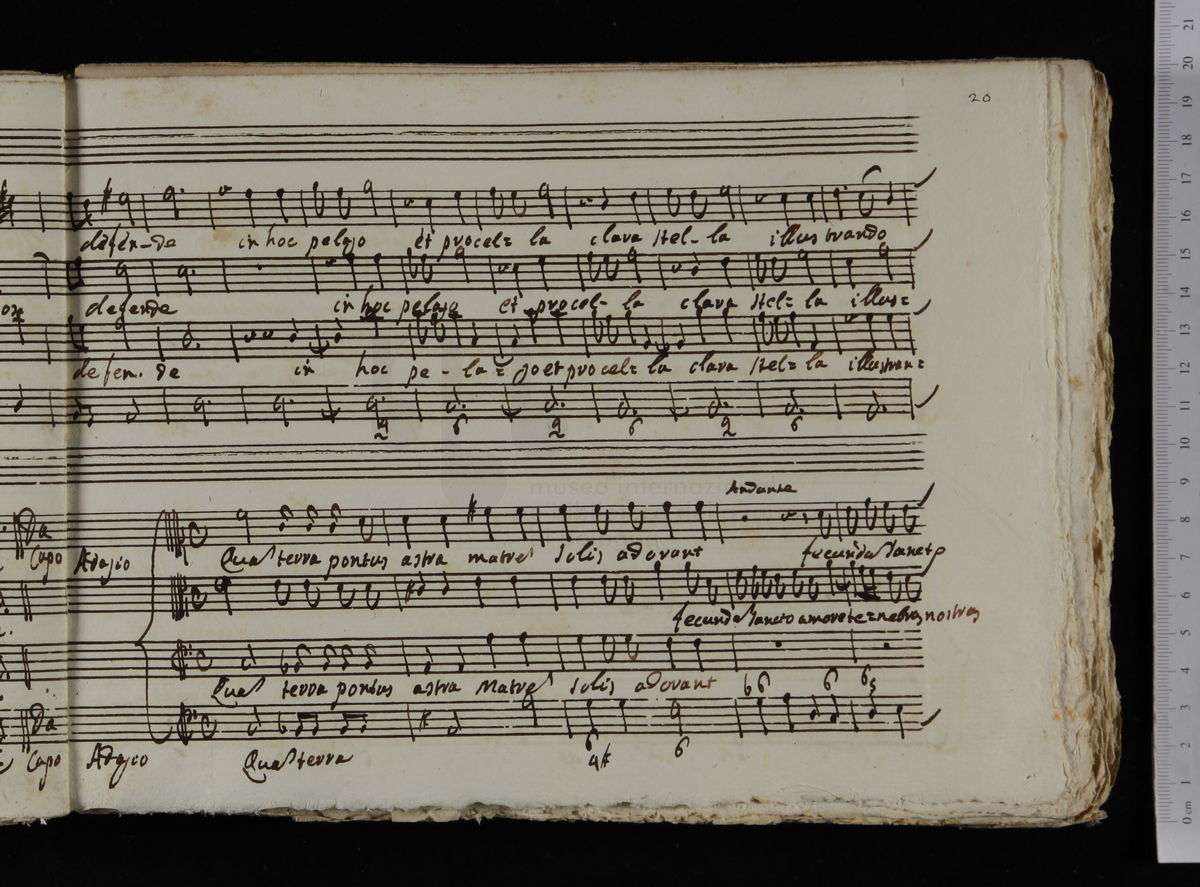 20
defen-de in hoc pelago et procel= la clara stel-la illustrando
defende in hoc pelago et procel= la clara stel= la illus=
defen. de in hoc pe - la= go et procel= la clara stel= la illustran=
2 6 2 6 2 6
museo internazi
Andante
Da
Capo Adagio Qua terra pontus astra matres solis adorant fecunda Sancto
fecunda Sancto amore te=nebras nostras
Qua terra pontus astra Matres solis adorant
Da
Capo Adagio Qua terra
0 cm 1 2 3 4 5 6 7 8 9 10 11 12 13 14 15 16 17 18 19 20 21